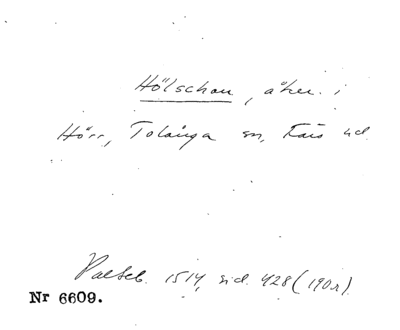 Hölschan, åker. i
Hörr, Tolånga sn, Färs hd.
Palteb. 1514, sid. 428 (190r).
Nr 6609.